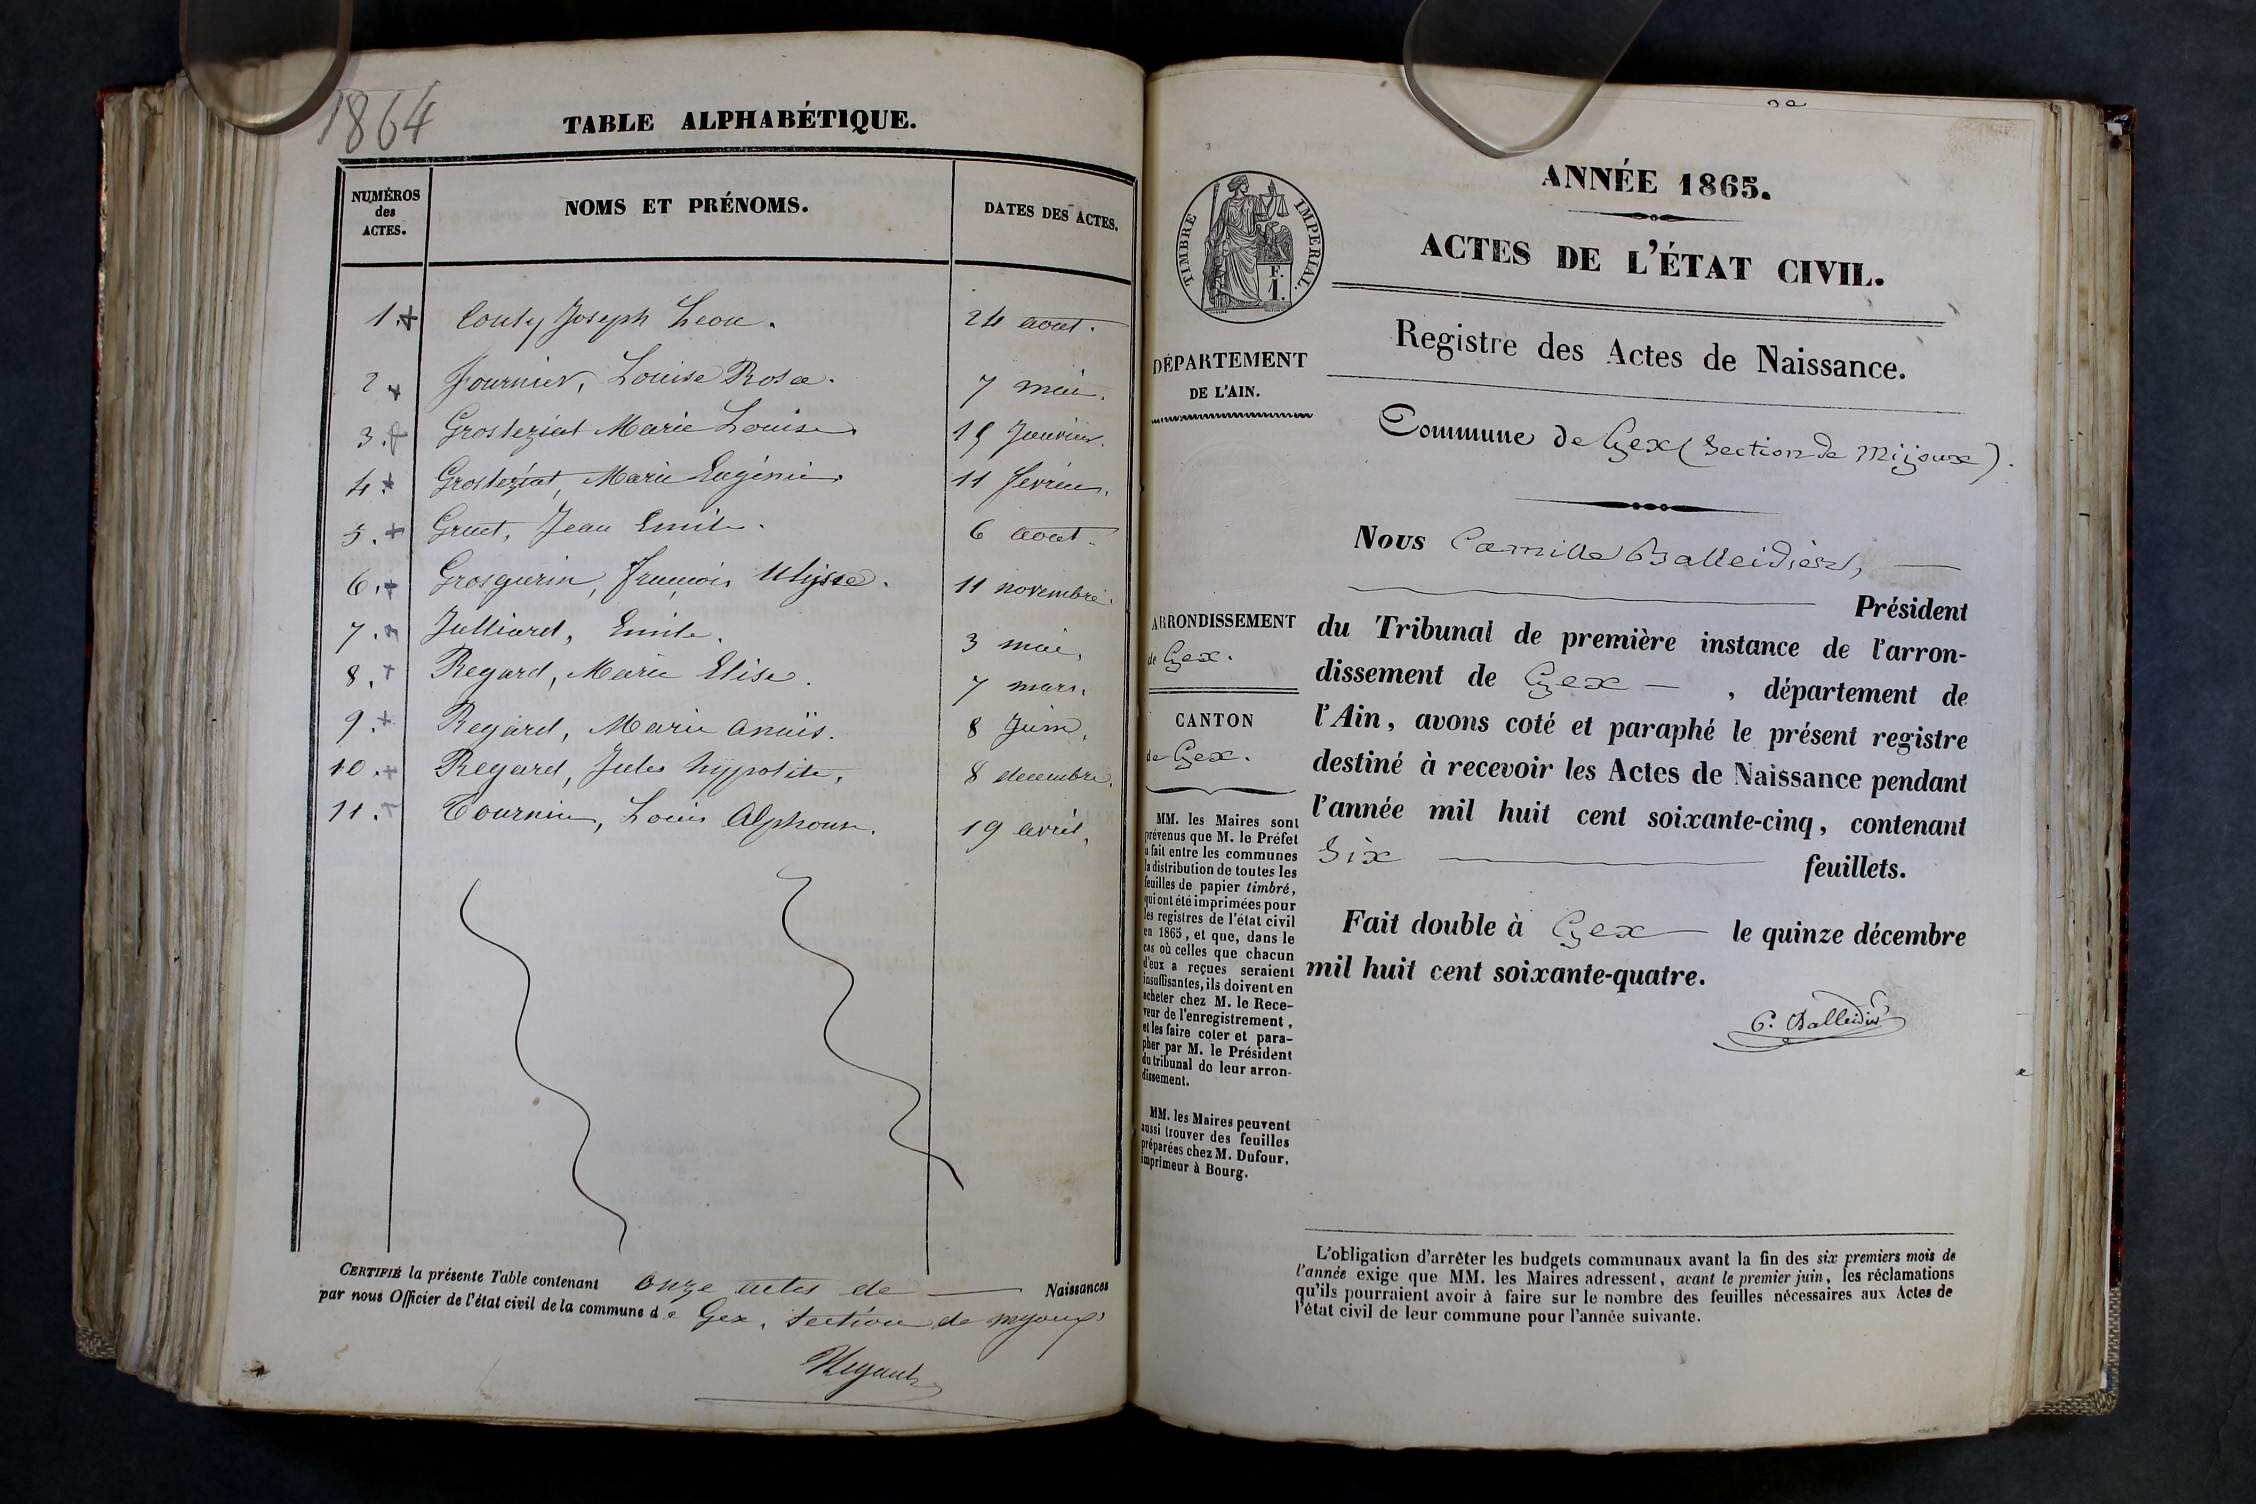 1864
TABLE ALPHABÉTIQUE.
NUMÉROS
des
ACTES.
NOMS ET PRÉNOMS.
DATES DES ACTES.
1. Couty Joseph Leon. 24 aout.
2 Fournier, Louise Rosa. 7 mai.
3. Grosteziat Marie Louise 15 Janvier.
4. Grosteziat, Marie Eugénie. 11 fevrier.
5. Gruet, Jean Emile. 6 aout.
6. Grosgurin, François Ulysse. 11 novembre.
7. Julliard, Emile. 3 mai,
8. Regard, Marie Elise. 7 mars.
9. Regard, Marie anaïs. 8 Juin,
10. Regard, Jules hyppolite. 8 decembre.
11. Tournier, Louis Alphonse. 19 avril,
CERTIFIÉ la présente Table contenant onze actes de Naissances
par nous Officier de l'état civil de la commune de Gex, section de mijoux
ANNÉE 1865.
ACTES DE L'ÉTAT CIVIL.
TIMBRE IMPERIAL.
F.
1.
Registre des Actes de Naissance.
DÉPARTEMENT
DE L'AIN.
Commune de Gex (Section de Mijoux).
Nous Camille Balleidier,
Président
du Tribunal de première instance de l'arron-
dissement de Gex, département de
l'Ain, avons coté et paraphé le présent registre
destiné à recevoir les Actes de Naissance pendant
l'année mil huit cent soixante-cinq, contenant
Six feuillets.
Fait double à Gex le quinze décembre
mil huit cent soixante-quatre.
C. Balleidier
ARRONDISSEMENT
de Gex.
CANTON
de Gex.
MM. les Maires sont
prévenus que M. le Préfet
a fait entre les communes
la distribution de toutes les
feuilles de papier timbré,
qui ont été imprimées pour
les registres de l'état civil
en 1865, et que, dans le
cas où celles que chacun
d'eux a reçues seraient
insuffisantes, ils doivent en
acheter chez M. le Rece-
veur de l'enregistrement,
et les faire coter et para-
pher par M. le Président
du tribunal de leur arron-
dissement.
MM. les Maires peuvent
aussi trouver des feuilles
préparées chez M. Dufour,
imprimeur à Bourg.
L'obligation d'arrêter les budgets communaux avant la fin des six premiers mois de
l'année exige que MM. les Maires adressent, avant le premier juin, les réclamations
qu'ils pourraient avoir à faire sur le nombre des feuilles nécessaires aux Actes de
l'état civil de leur commune pour l'année suivante.